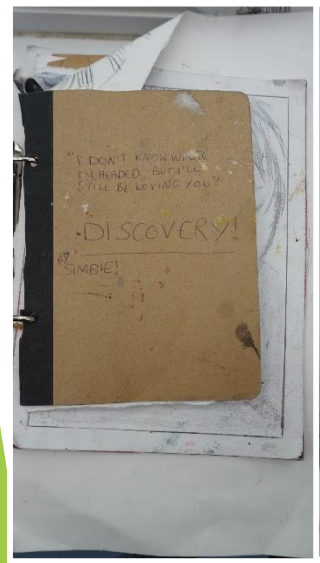 "I DON'T KNOW WHERE
I'M HEADED, BUT I'LL
STILL BE LOVING YOU"
DISCOVERY!
BY
SIMBIE!